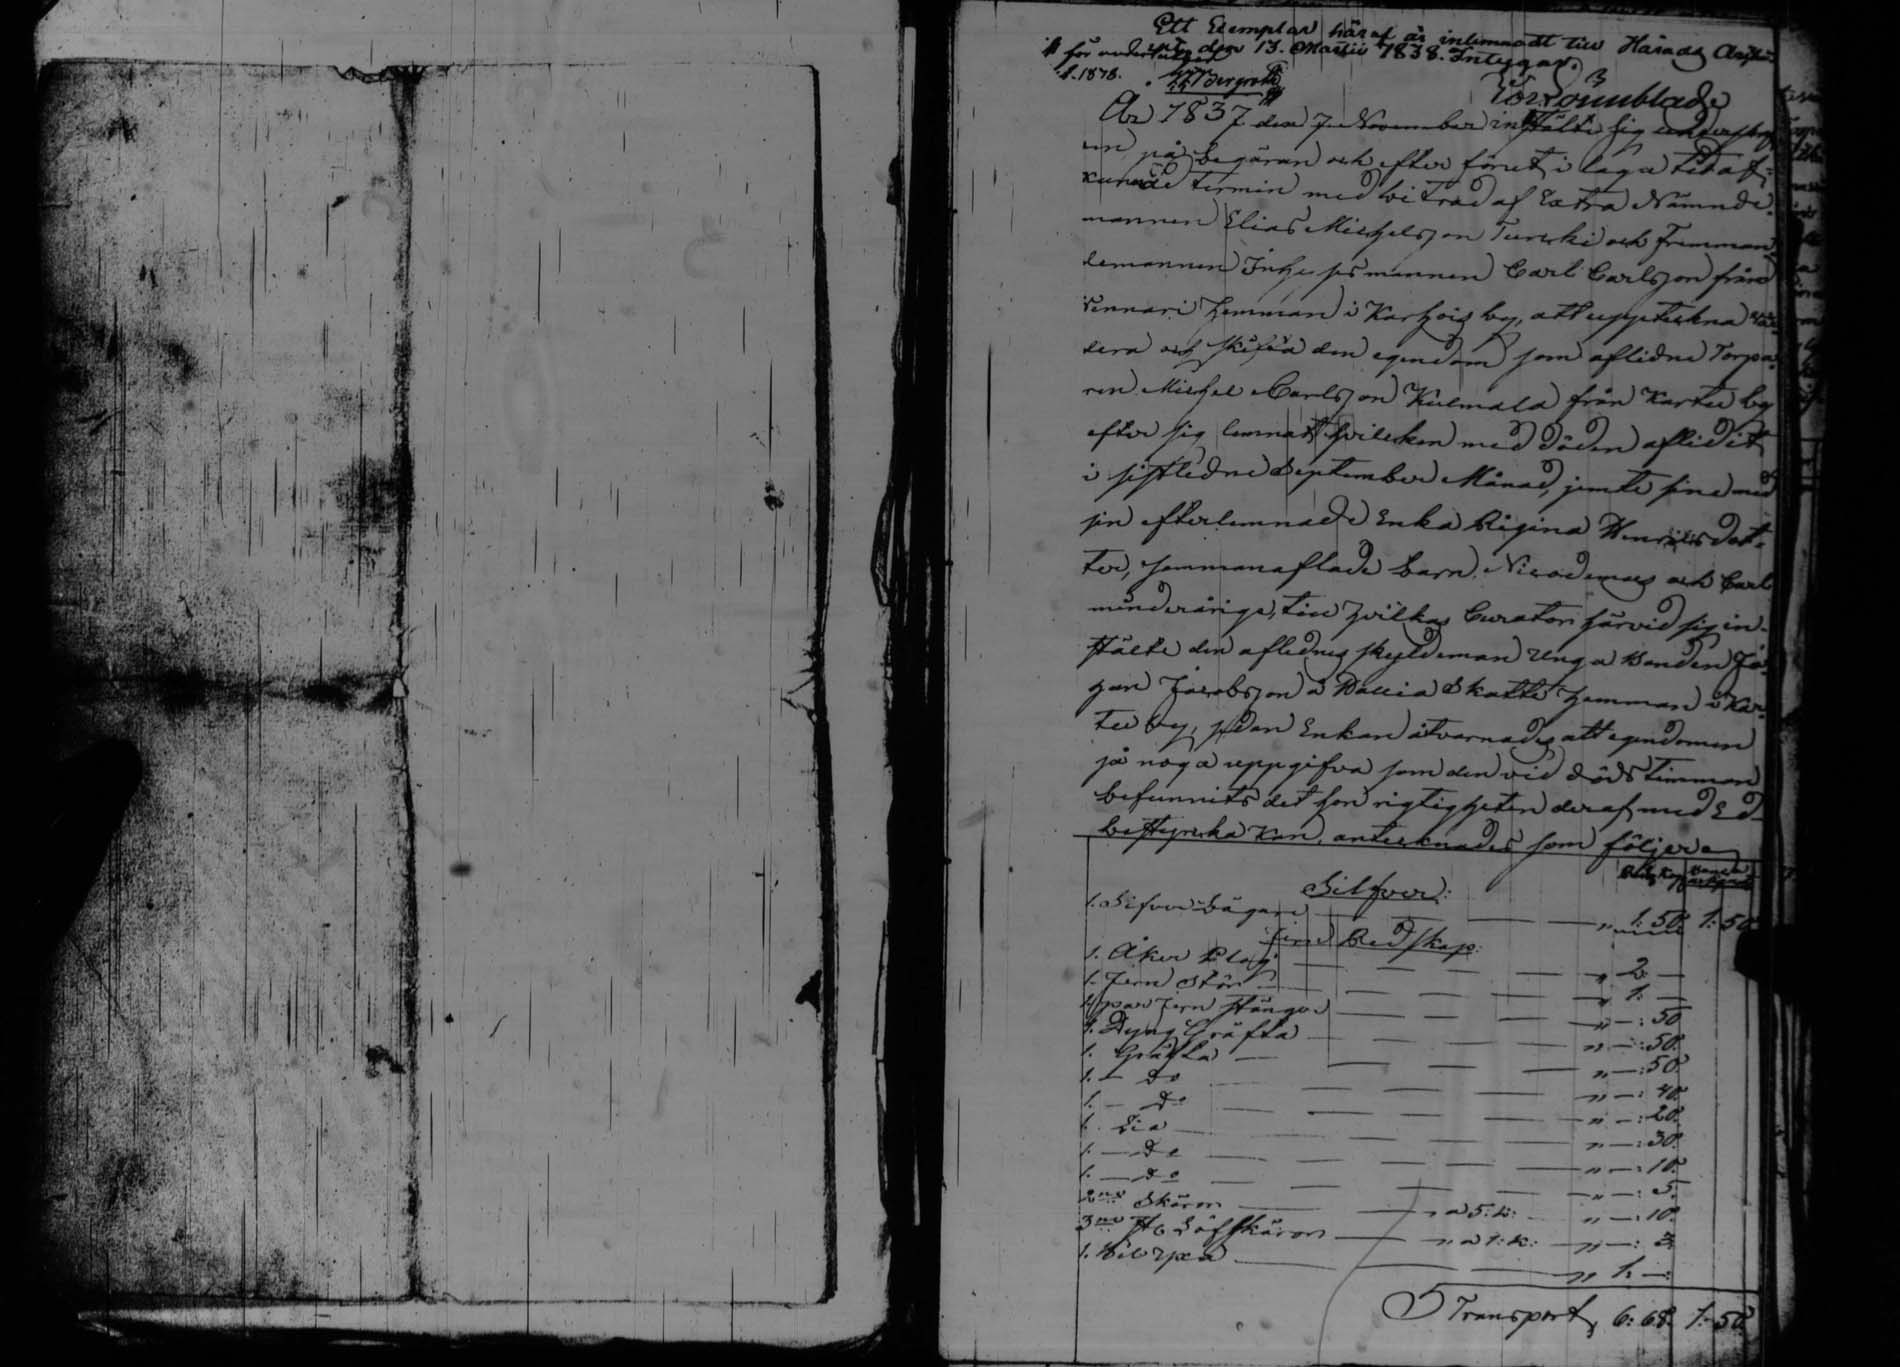 Ett Exemplar häraf är inlemnadt till Härads
den 13. Martii 1838. Intygar
1838.
År 1837 den 7 November instälte sig
en på begäran och efter förut i laga tid af-
kunnade termin med biträde af Extra Nämnde-
mannen Elias Michelsson Turcki och
demannen Inhysesmannen Carl Carlsson från
Vennari hemman i Karhois by, att uppteckna vär-
dera och skifta den egendom som aflidne Torpa-
ren Michel Carlsson Kulmala från Kartu by
efter sig lemnat hvilcken med döden aflidit
i sistledne September Månad, jemte sine med
sin efterlemnade Enka Regina Henricsdot-
ter, sammanaflade barn Nicodemus och Carl
minderårige, till hvilkas Curator härvid sig in-
stälte den aflednes skyldeman Unga Bonden Jo-
han Jacobsson å Skatte hemman i Kar-
tu by, sedan Enkan åtvarnades att egendomen
så noga uppgifva som den vid dödstimman
befunnits det hon rigtigheten deraf med Ed
bestyrcka kan, antecknades som följer
Silfver:
1. Silfver bägare — „ 1: 50. 1: 50
Jern Redskap:
1. Åker Plog — „ 2. —
1. Jern Stör — „ 1: —
4 par Jern stänger — „ — : 50
1. Dyng Gräfta — „ — : 50.
1. Gräfta — „ — : 50
1. — Do — „ — : 40.
1. — Do — „ — : 20.
1. Lia — „ — : 30.
1. — Do — „ — : 10.
1. — Do — „ — : 5.
2ne Skäror — „ a 5. k: „ — : 10.
3ne St. Löfskäror — „ a 1: k: „ — : 3
1. Yxa — „ 1: —
Transport, 6: 68. 1: 50.